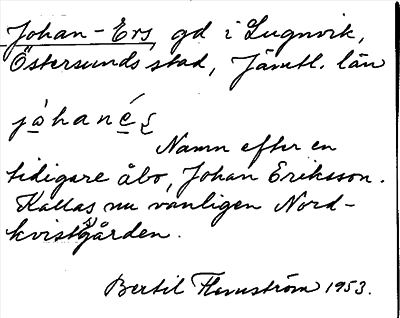 Johan-Ers, gd i Lugnvik,
Östersunds stad, Jämtl. län
johanés
Namn efter en
tidigare åbo, Johan Eriksson.
Kallas nu vanligen Nord-
kvistsgården.
Bertil Flemström 1953.